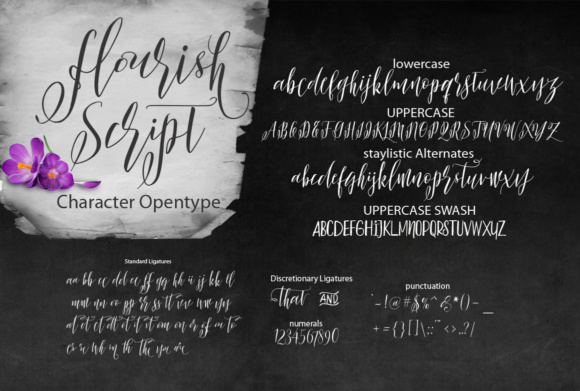 flourish
Script
Character Opentype
lowercase
abcdefghijklmnopqrstuvwxyz
UPPERCASE
ABCDEFGHIJKLMNOPQRSTUVWXYZ
staylistic Alternates
abcdefghijklmnopqrstuvwxy
UPPERCASE SWASH
ABCDEFGHIJKLMNOPQRSTUVWXYZ
Standard Ligatures
aa bb cc dd ee ff gg hh ii jj kk ll
mm nn oo pp rr ss tt
Discretionary Ligatures
that AND
numerals
1234567890
punctuation